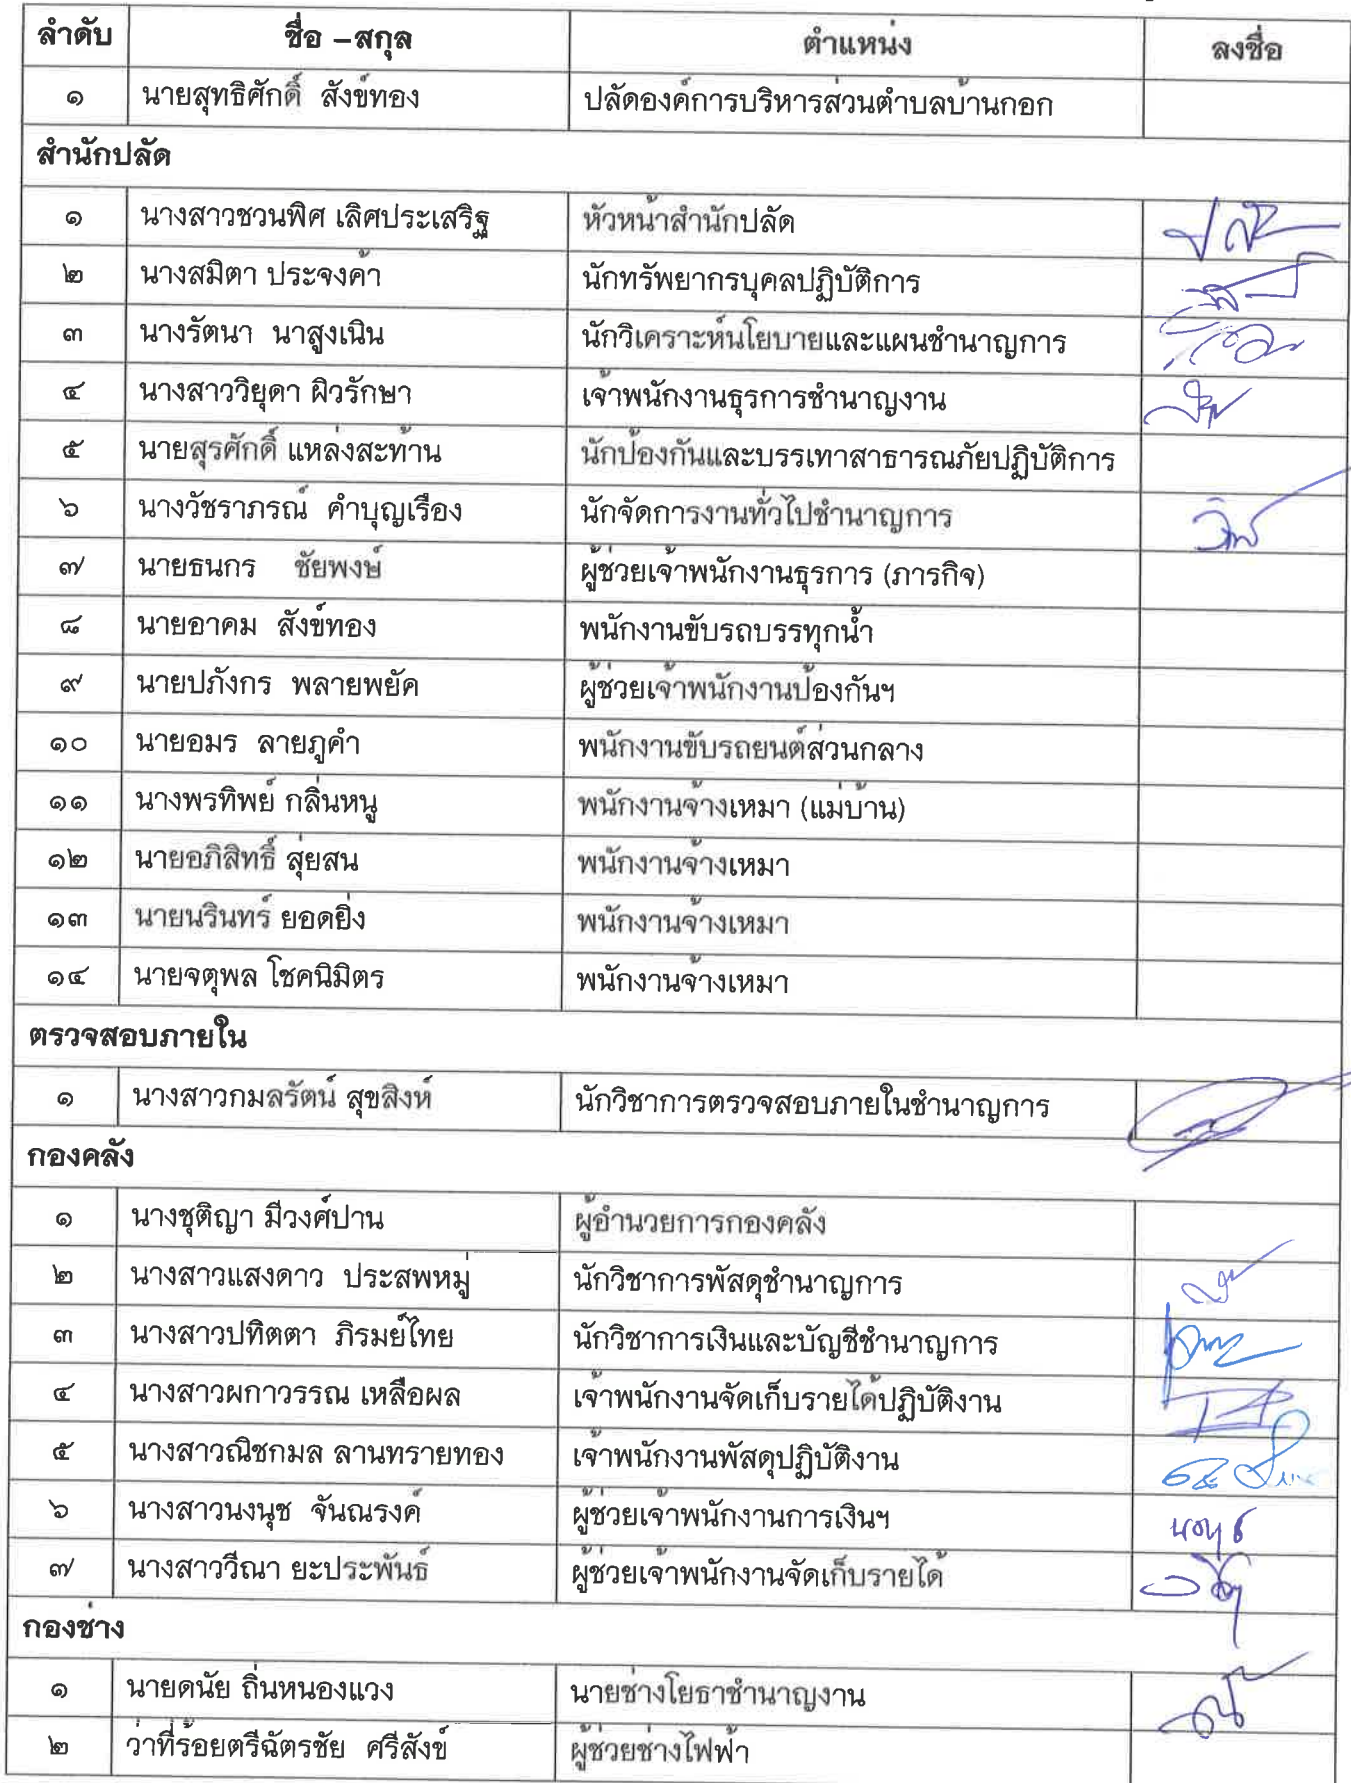 ลำดับ ชื่อ –สกุล ตำแหน่ง ลงชื่อ
๑ นายสุทธิศักดิ์ สังข์ทอง ปลัดองค์การบริหารส่วนตำบลบ้านกอก
สำนักปลัด
๑ นางสาวชวนพิศ เลิศประเสริฐ หัวหน้าสำนักปลัด
๒ นางสมิตา ประจงค้า นักทรัพยากรบุคลปฏิบัติการ
๓ นางรัตนา นาสูงเนิน นักวิเคราะห์นโยบายและแผนชำนาญการ
๔ นางสาววิยุดา ผิวรักษา เจ้าพนักงานธุรการชำนาญงาน
๕ นายสุรศักดิ์ แหล่งสะท้าน นักป้องกันและบรรเทาสาธารณภัยปฏิบัติการ
๖ นางวัชราภรณ์ คำบุญเรือง นักจัดการงานทั่วไปชำนาญการ
๗ นายธนกร ชัยพงษ์ ผู้ช่วยเจ้าพนักงานธุรการ (ภารกิจ)
๘ นายอาคม สังข์ทอง พนักงานขับรถบรรทุกน้ำ
๙ นายปภังกร พลายพยัค ผู้ช่วยเจ้าพนักงานป้องกันฯ
๑๐ นายอมร ลายภูคำ พนักงานขับรถยนต์ส่วนกลาง
๑๑ นางพรทิพย์ กลิ่นหนู พนักงานจ้างเหมา (แม่บ้าน)
๑๒ นายอภิสิทธิ์ สุ่ยสน พนักงานจ้างเหมา
๑๓ นายนรินทร์ ยอดยิ่ง พนักงานจ้างเหมา
๑๔ นายจตุพล โชคนิมิตร พนักงานจ้างเหมา
ตรวจสอบภายใน
๑ นางสาวกมลรัตน์ สุขสิงห์ นักวิชาการตรวจสอบภายในชำนาญการ
กองคลัง
๑ นางชุติญา มีวงศ์ปาน ผู้อำนวยการกองคลัง
๒ นางสาวแสงดาว ประสพหมู่ นักวิชาการพัสดุชำนาญการ
๓ นางสาวปทิตตา ภิรมย์ไทย นักวิชาการเงินและบัญชีชำนาญการ
๔ นางสาวผกาวรรณ เหลือผล เจ้าพนักงานจัดเก็บรายได้ปฏิบัติงาน
๕ นางสาวณิชกมล ลานทรายทอง เจ้าพนักงานพัสดุปฏิบัติงาน
๖ นางสาวนงนุช จันณรงค์ ผู้ช่วยเจ้าพนักงานการเงินฯ
๗ นางสาววีณา ยะประพันธ์ ผู้ช่วยเจ้าพนักงานจัดเก็บรายได้
กองช่าง
๑ นายดนัย ถิ่นหนองแวง นายช่างโยธาชำนาญงาน
๒ ว่าที่ร้อยตรีฉัตรชัย ศรีสังข์ ผู้ช่วยช่างไฟฟ้า